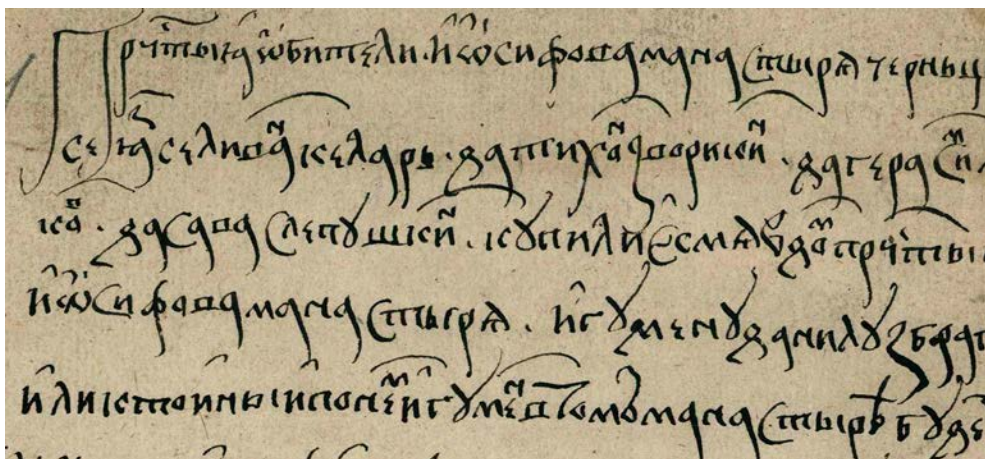 Прчⷭ҇тыꙗ ѡбители иѡсифова манастырѧ чернц
се ꙗз селиваⷩ келарь да тихаⷩ дворкиⷩ да гераси
ко да сава слепушкиⷩ купили есмѧ в доⷨ прчⷭ҇тыі
иѡсифова манастырѧ игумену данилу з бра
или кто иныи по неⷨ игумеⷩ в томо манастырѣ буде